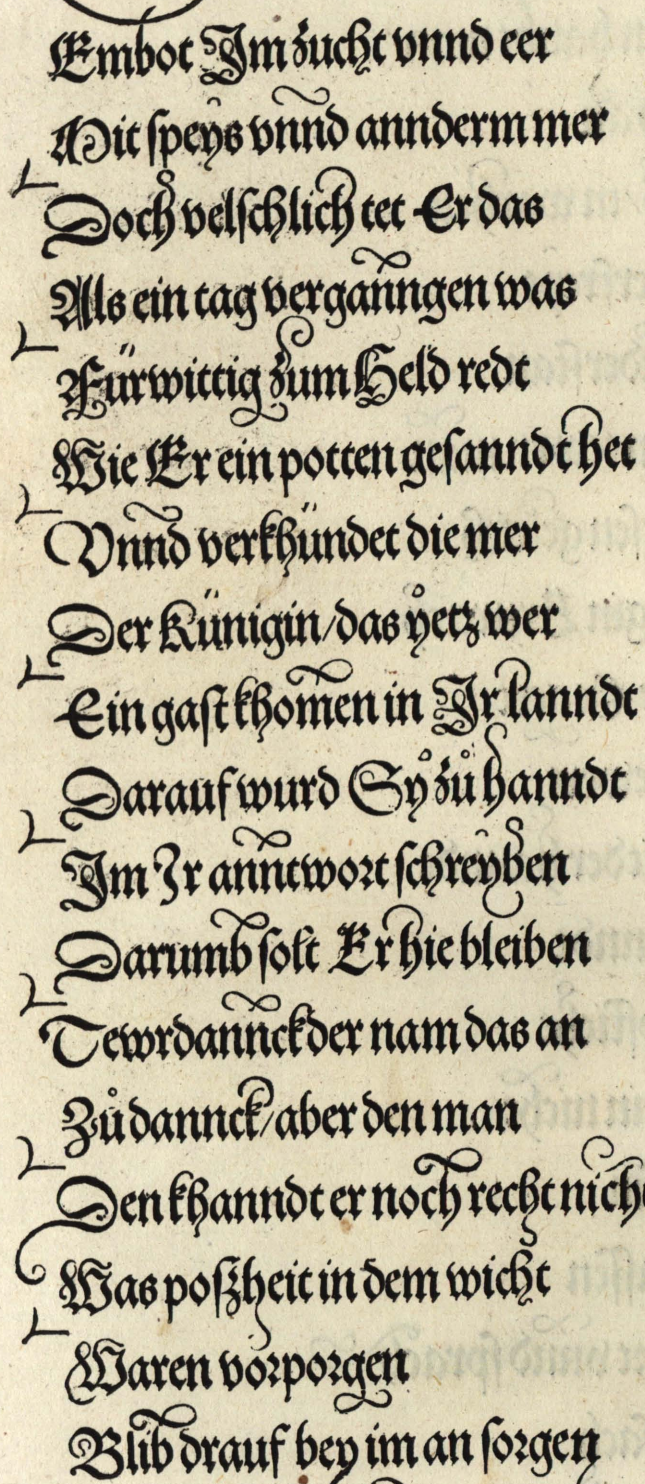 Embot Im zucht vnnd eer
Mit speys vnnd annderm mer
Doch velschlich tet Er das
Als ein tag verganngen was
Fürwittig zum Held redt
Wie Er ein potten gesanndt het
Vnnd verkhündet die mer
Der Künigin/das yetz wer
Ein gast khomen in Ir lanndt
Darauf wurd Sy zů hanndt
Im Ir anntwort schreyben
Darumb solt Er hie bleiben
Tewrdannck der nam das an
Zů dannck/aber den man
Den khanndt er noch recht nich
Was poszheit in dem wicht
Waren vorporgen
Blib drauf bey im an sorgen